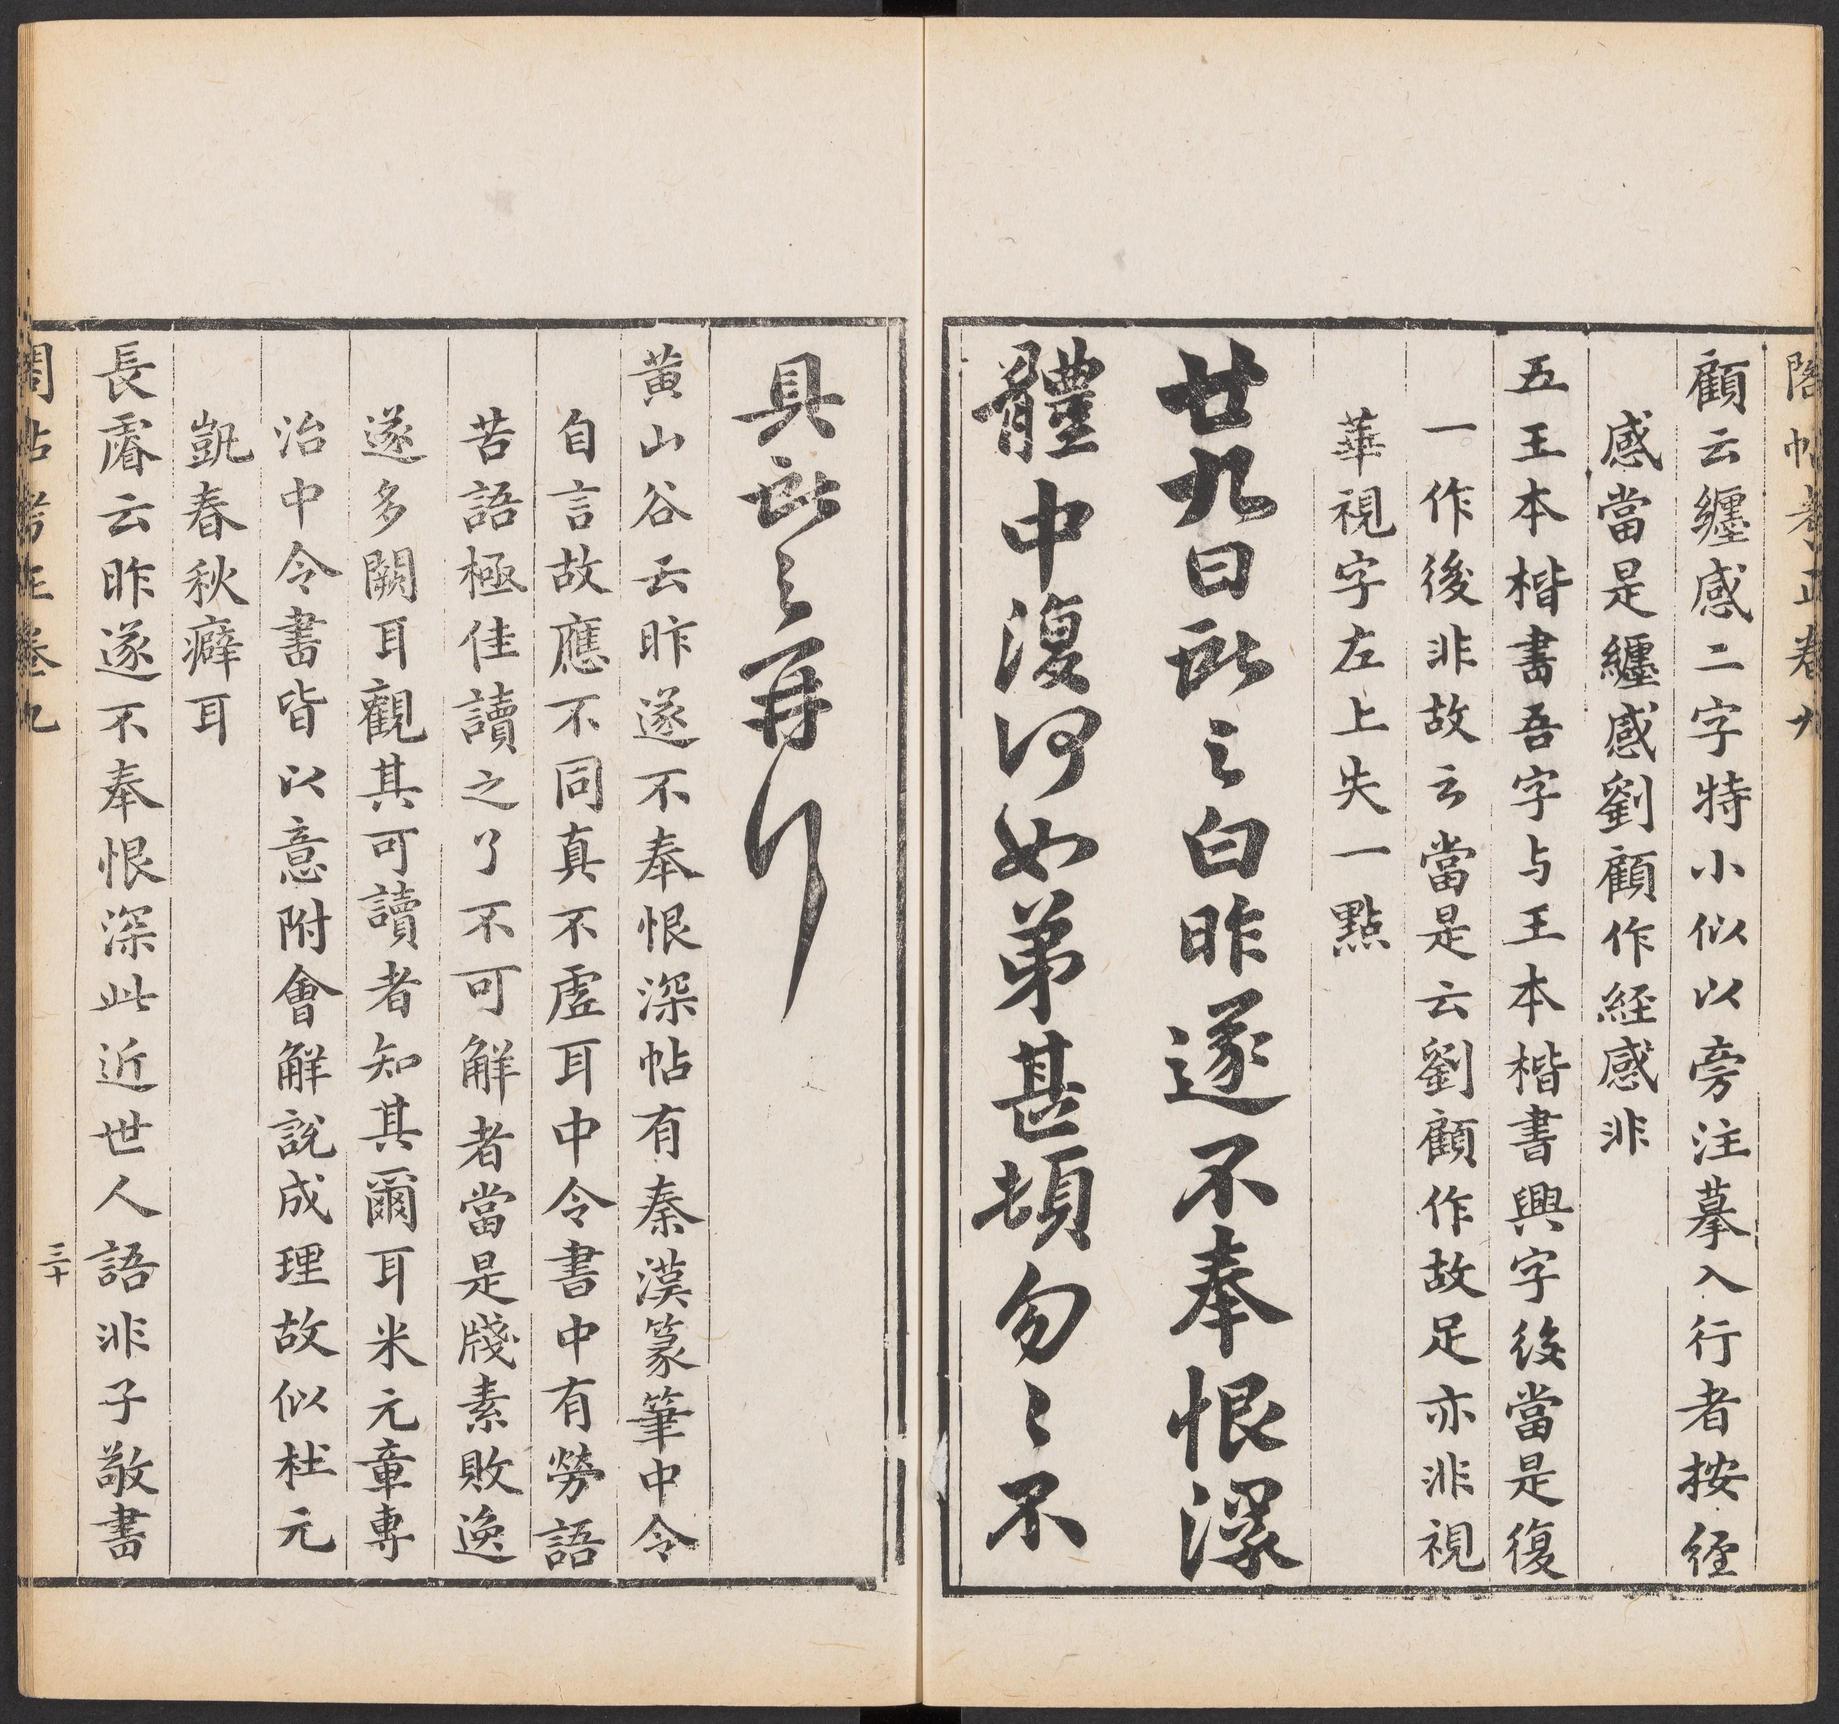 閣帖考正卷九
顧云纏感二字特小似以旁注摹入行者按經
感當是纏感感劉顧作經感非
五王本楷書吾字与王本楷書興字後當是復
一作後非故云當是云劉顧作故足亦非視
華視字左上失一點
廿九日獻之白昨遂不奉恨深
體中復何如弟甚頓勿〻不
具獻之再行
黄山谷云昨遂不奉恨深帖有秦漢篆筆中令
自言故應不同真不虛耳中令書中有勞語
苦語極佳讀之了不可解者當是牋素敗逸
遂多闕耳觀其可讀者知其爾耳米元章專
治中令書皆以意附會解說成理故似杜元
凱春秋癖耳
長睿云昨遂不奉恨深此近世人語非子敬書
閣帖考正卷九
三十